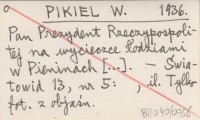 PIKIEL W. 1936.
Pan Prezydent Rzeczypospoli-
tej na wycieczce łodziami
w Pieninach [...]. - Świa-
towid 13, nr 5: , il. Tylko
fot. z objaśn.